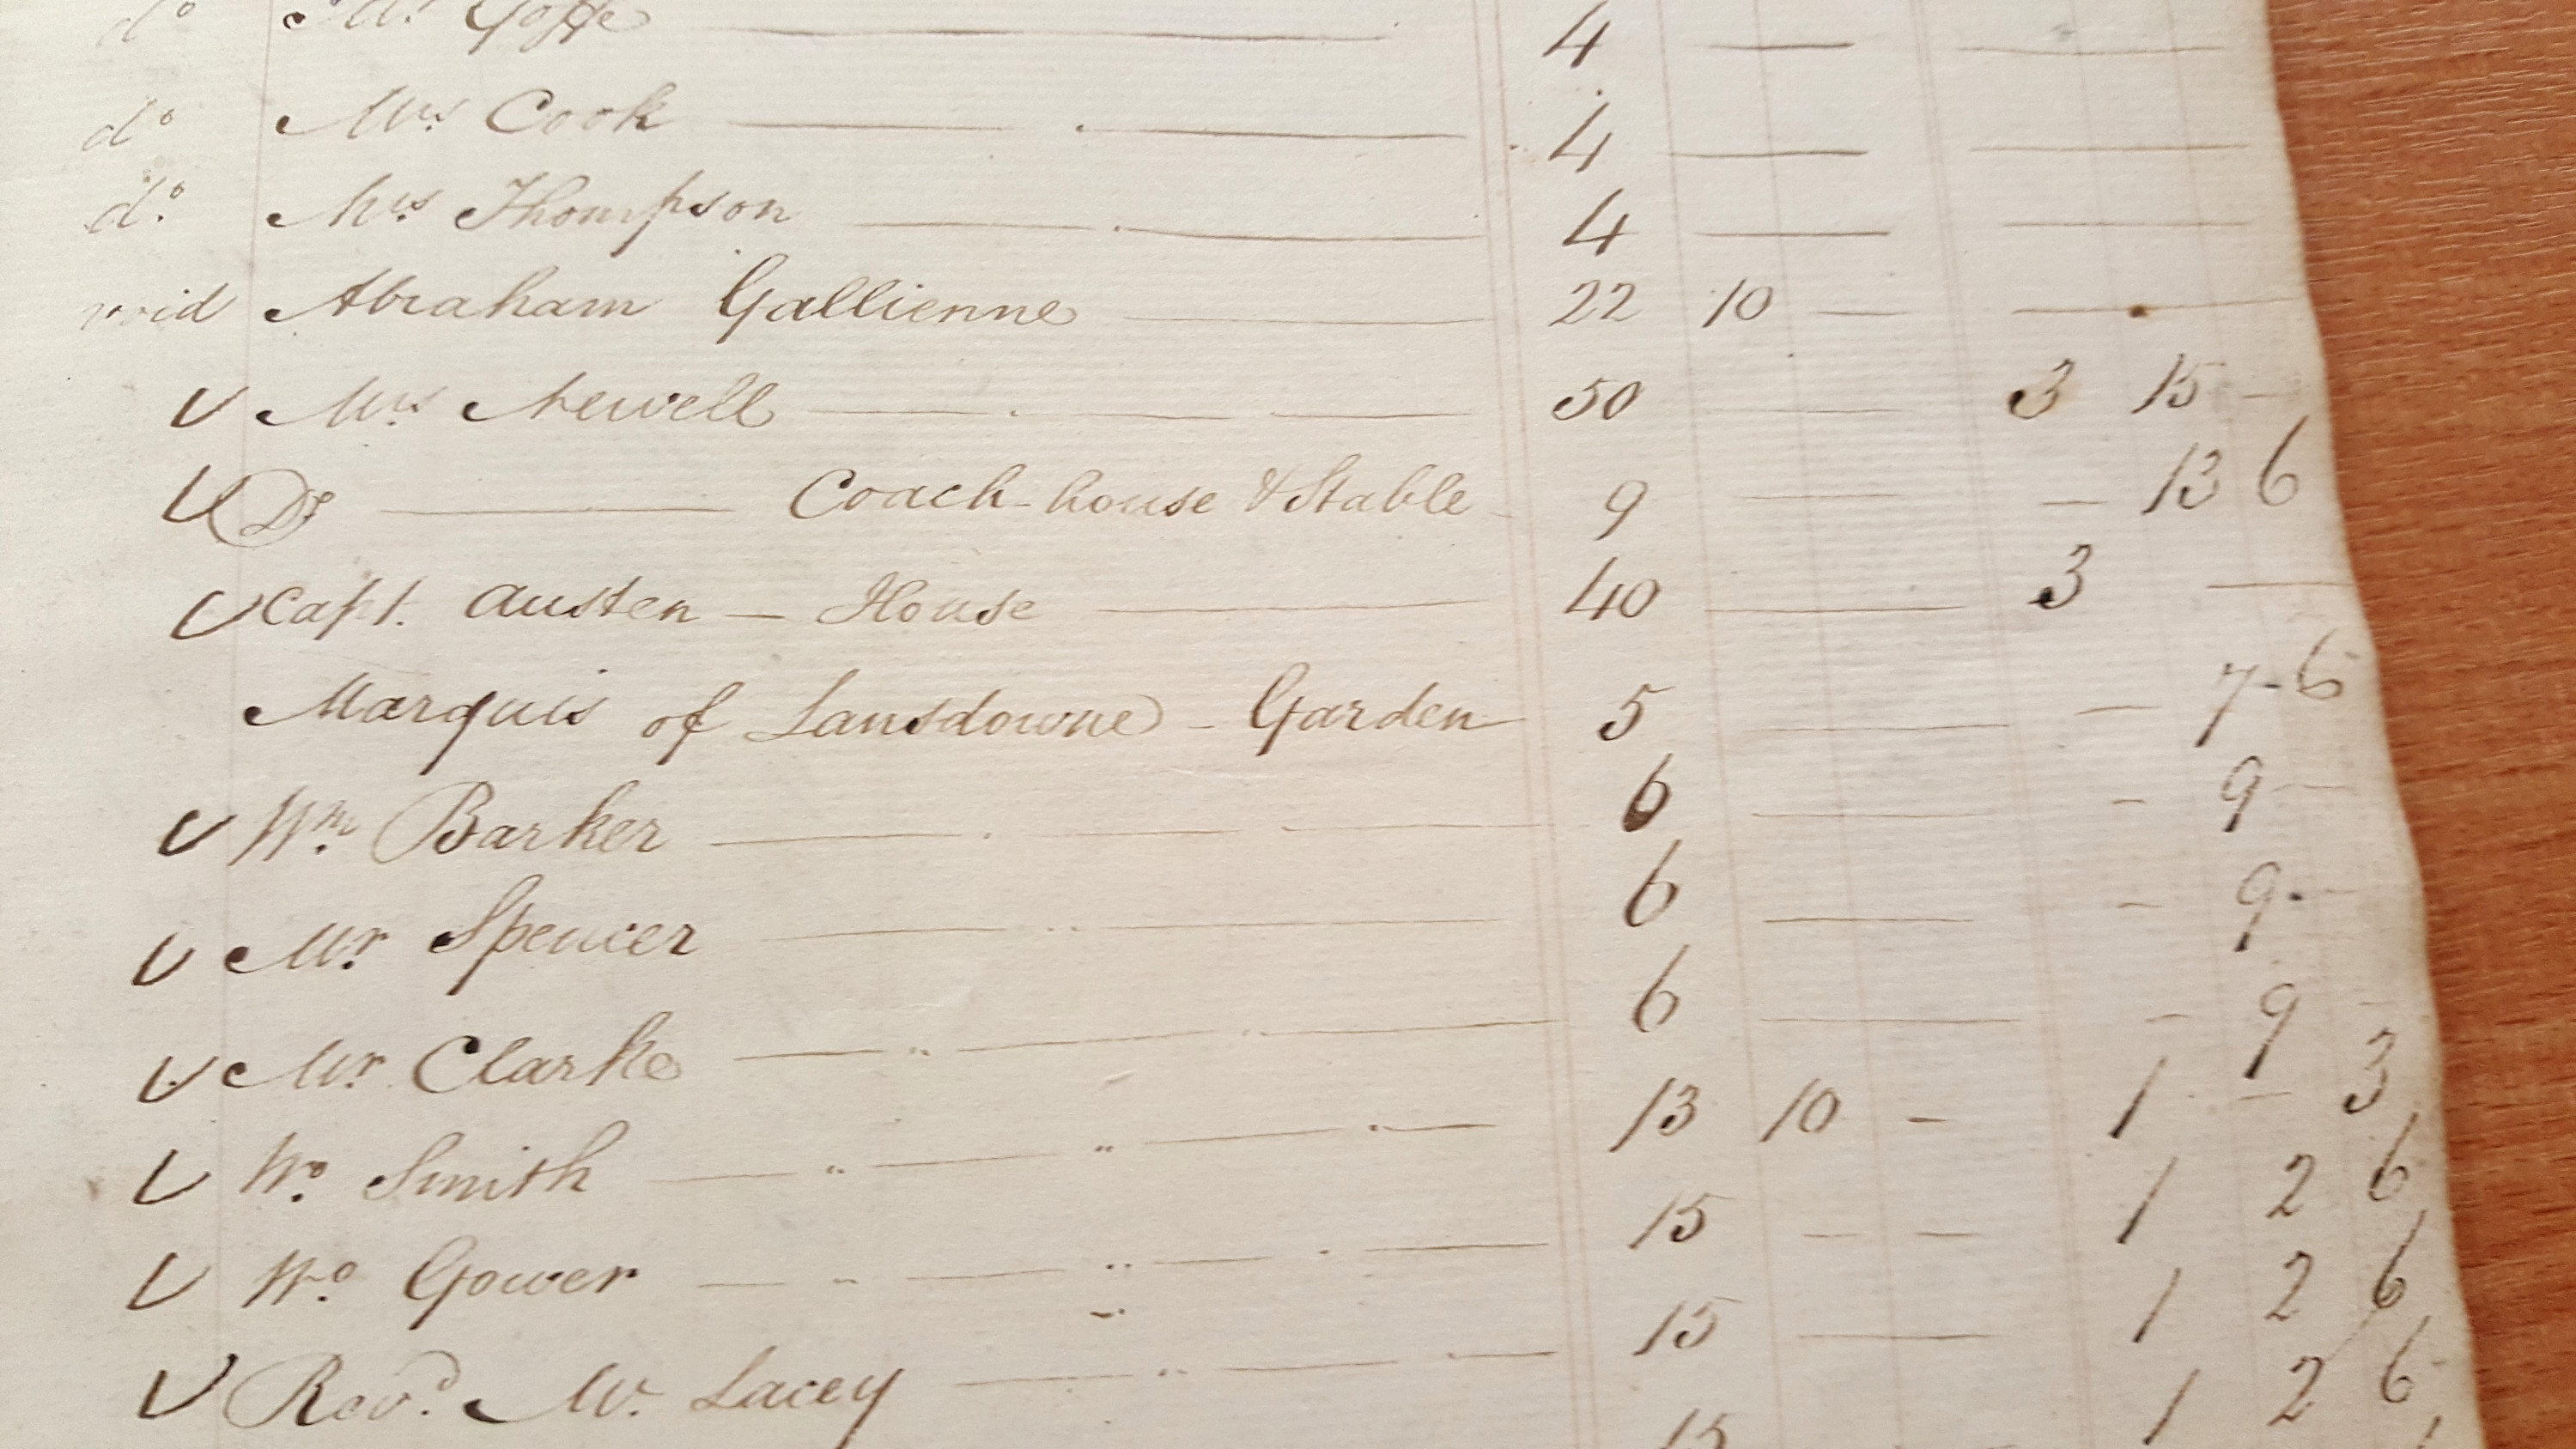 d° Goffe 4 — —
d° Mrs. Cook — 4 — —
d°. Mrs. Thompson — 4 — —
void Abraham Gallienne — 22 10 — —
Mrs. Newell — 50 — 3 15 —
D° — Coach-house & Stable - 9 — — 13 6
Capt. Austen — House — 40 — 3 —
Marquis of Lansdowne - Garden 5 — — 7-6
Wm. Barker — 6 — — 9 —
Mr. Spencer — 6 — — 9 —
Mr. Clarke — 6 — — 9 —
W°. Smith — 13 10 - 1 — 3
W°. Gower — 15 — — 1 2 6
Revd. Mr. Lacey — 15 — 1 2 6
15 - 1 2 6